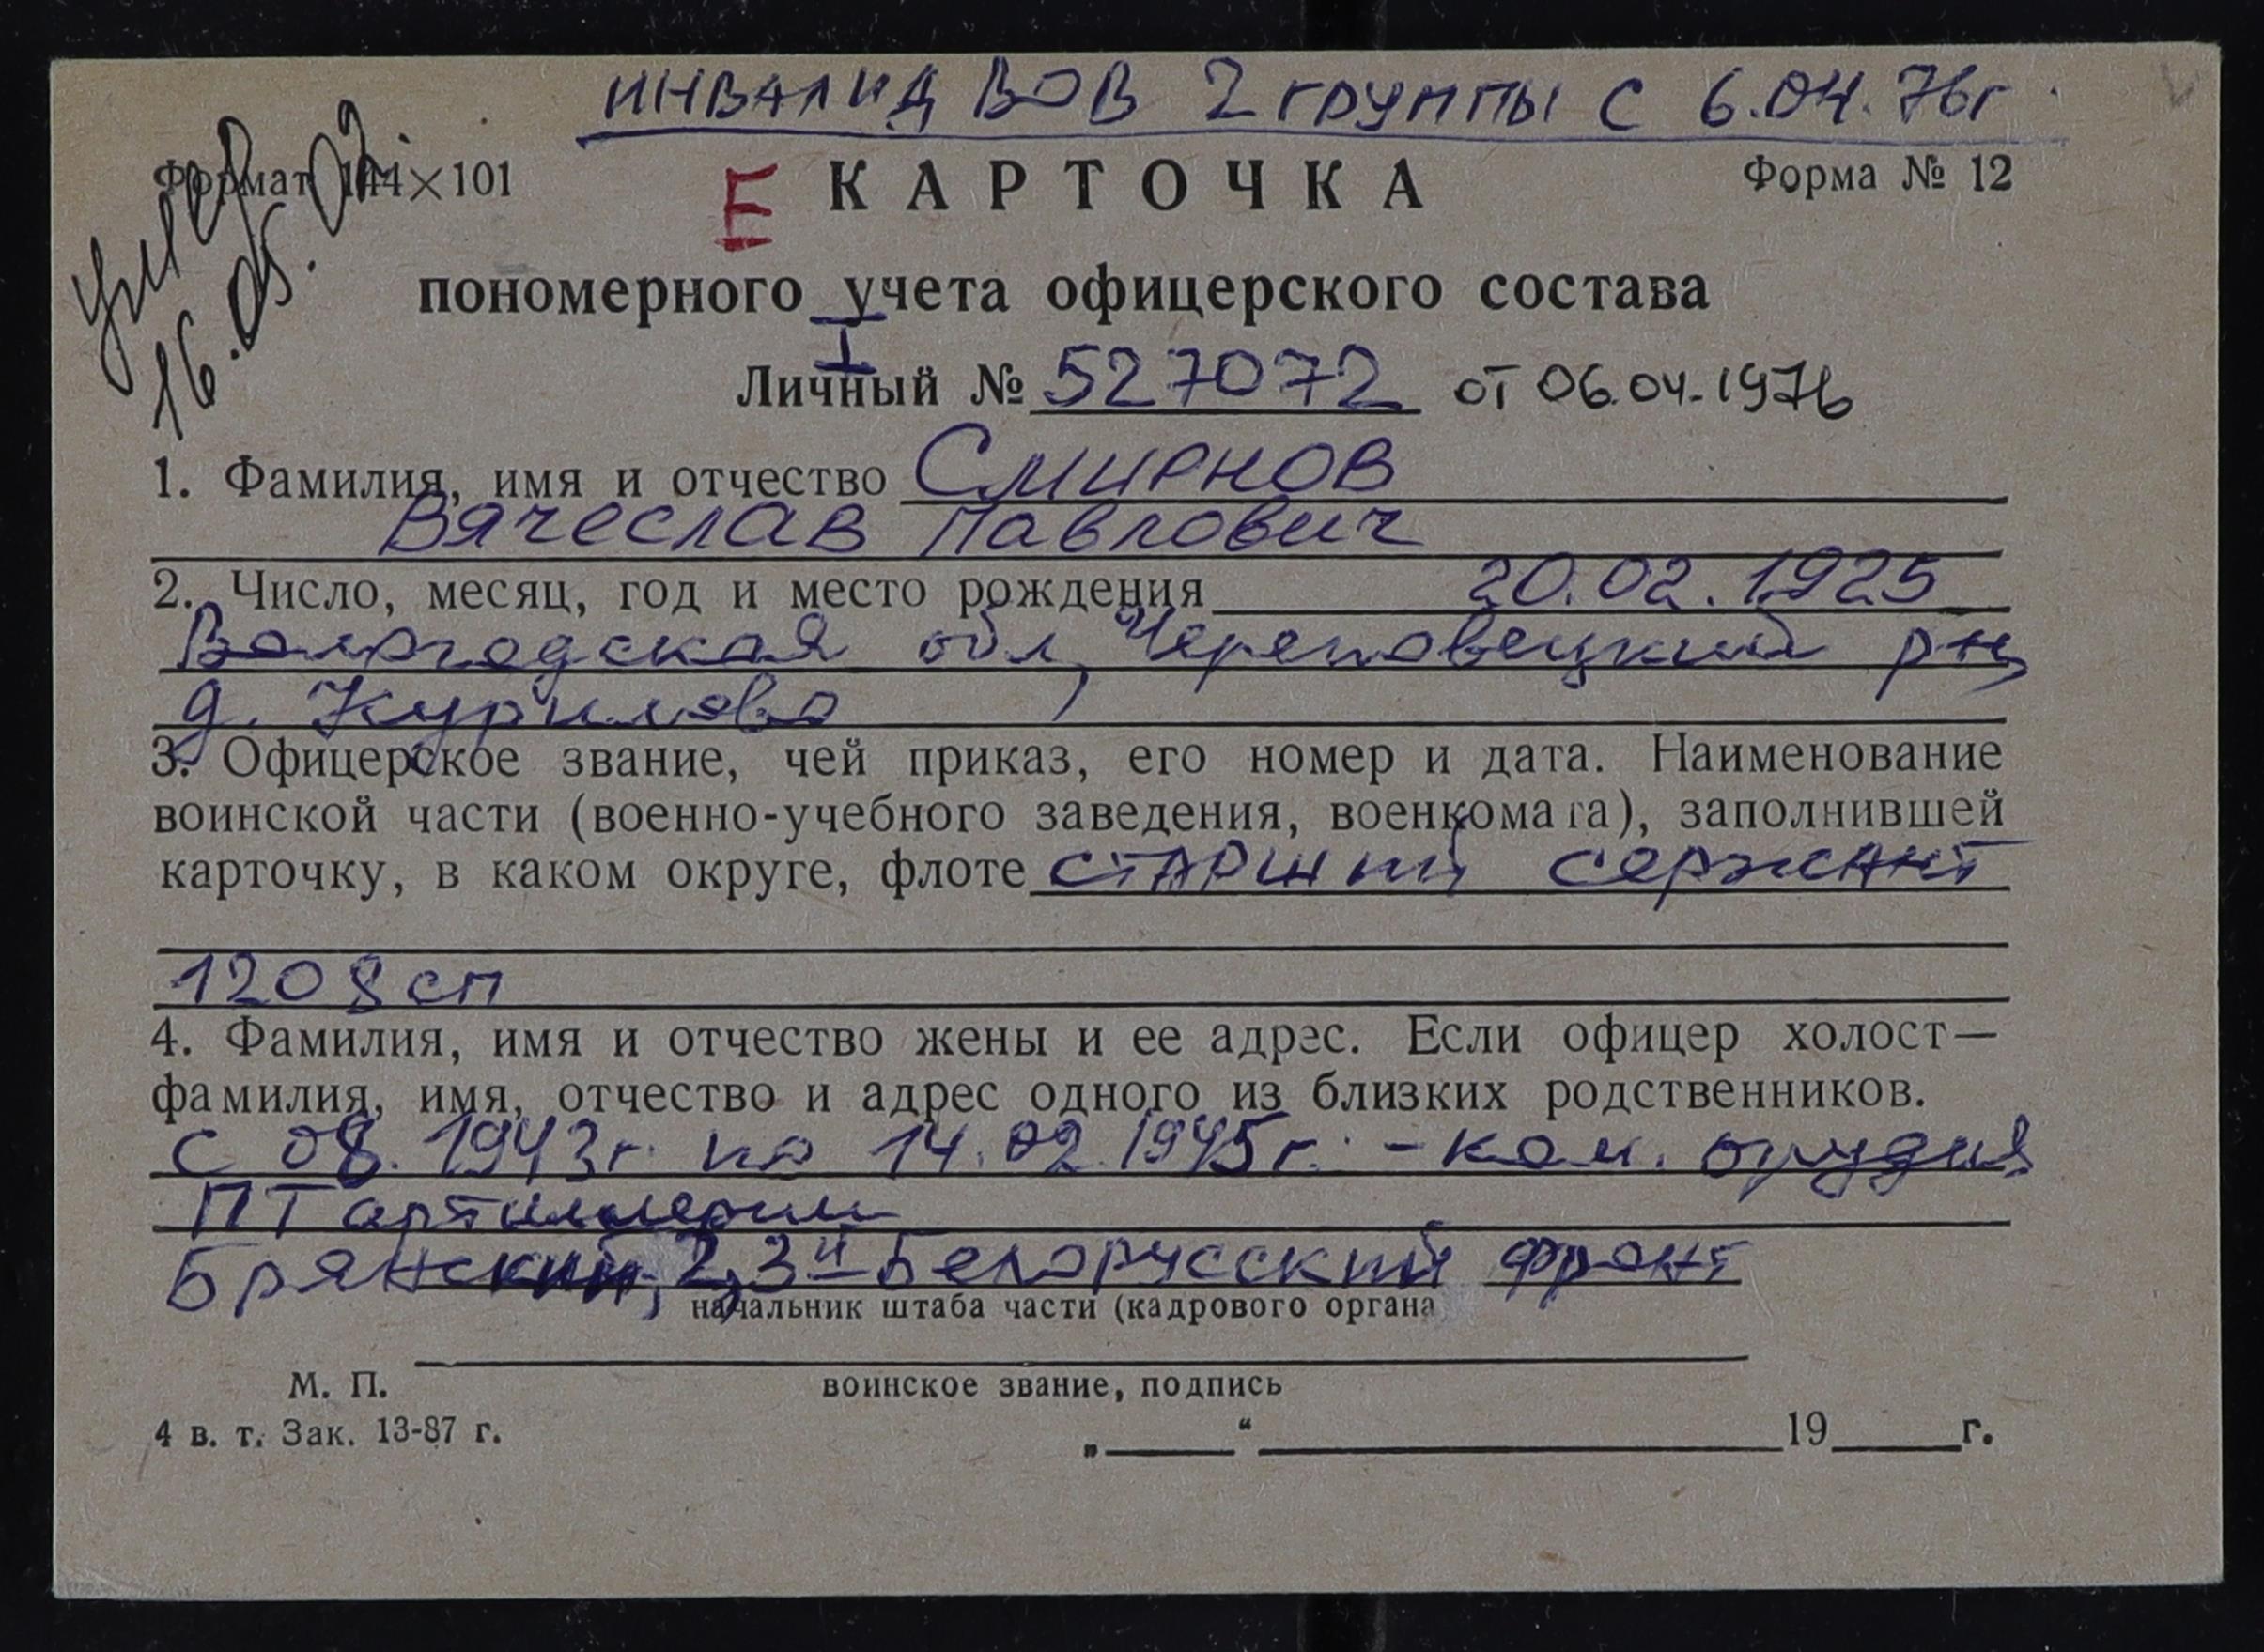 ИНВАЛИД ВОВ 2 группы с 6.04.76г.
умер
16.05.02.
Формат 144×101
Е
КАРТОЧКА
Форма № 12
пономерного учета офицерского состава
I
Личный № 527072 от 06.04.1976
1. Фамилия, имя и отчество Смирнов
Вячеслав Павлович
2. Число, месяц, год и место рождения 20.02.1925
Вологодская обл, Череповецкий р-н
д. Курилово
3. Офицерское звание, чей приказ, его номер и дата. Наименование
воинской части (военно-учебного заведения, военкомата), заполнившей
карточку, в каком округе, флоте старший сержант
1208 сп
4. Фамилия, имя и отчество жены и ее адрес. Если офицер холост—
фамилия, имя, отчество и адрес одного из близких родственников.
с 08.1943г. по 14.02.1945г. - ком. орудия
ПТ артиллерии
Брянский, 2,3й-Белорусский фронт
начальник штаба части (кадрового органа
М. П.
воинское звание, подпись
4 в. т. Зак. 13-87 г.
„____“ ____________ 19____г.